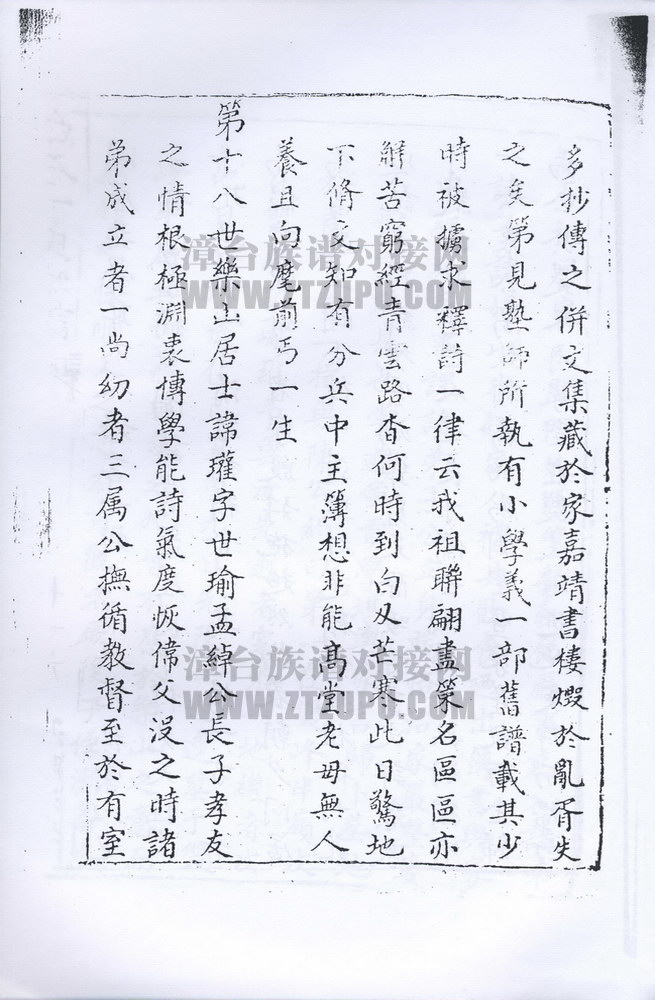 多抄傳之併文集藏於家嘉靖書樓燬於亂胥失
之矣第見塾師所執有小學義一部舊譜載其少
時被擄求釋詩一律云我祖聯翩盡策名區區亦
解苦窮經青雲路杳何時到白刃芒寒此日驚地
下脩文知有分兵中主簿想非能高堂老母無人
養且向麾前丐一生
第十八世樂山居士諱瓘字世瑜孟綽公長子孝友
之情根極淵衷博學能詩氣度恢偉父沒之時諸
弟成立者一尚幼者三属公撫循教督至於有室
漳台族谱对接网
WWW.ZTZUPU.COM
漳台族谱对接网
WWW.ZTZUPU.COM